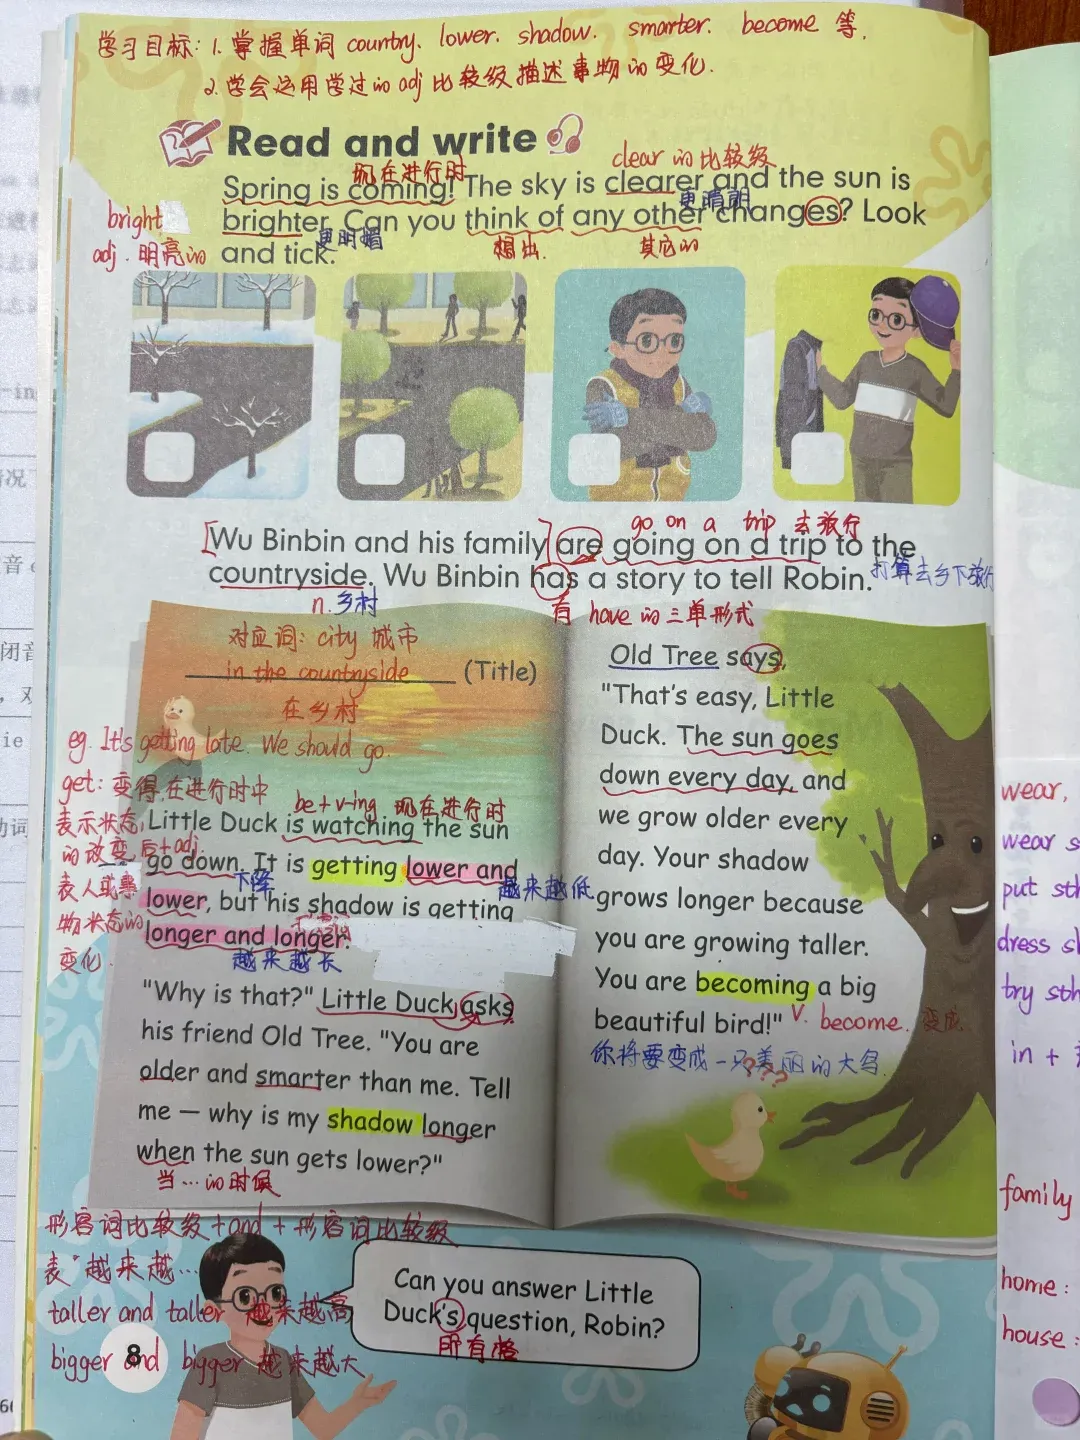 学习目标: 1. 掌握单词 country. lower. shadow. smarter. become 等.
2. 学会运用学过的 adj 比较级描述事物的变化.
Read and write
现在进行时
clear 的比较级
Spring is coming! The sky is clearer and the sun is
更晴朗
bright
brighter. Can you think of any other changes? Look
adj. 明亮的
更明媚
想出.
其它的
and tick.
go on a trip 去旅行
Wu Binbin and his family are going on a trip to the
countryside. Wu Binbin has a story to tell Robin.
打算去乡下旅行
n. 乡村
有 have 的三单形式
对应词: city 城市
in the countryside (Title)
在乡村
eg. It's getting late. We should go.
get: 变得, 在进行时中
表示状态
的改变, 后+adj.
表人或事
物状态的
变化.
be+v-ing 现在进行时
Little Duck is watching the sun
go down. It is getting lower and
下降
越来越低
lower, but his shadow is getting
longer and longer.
越来越长
"Why is that?" Little Duck asks
his friend Old Tree. "You are
older and smarter than me. Tell
me — why is my shadow longer
when the sun gets lower?"
当…的时候
Old Tree says,
"That's easy, Little
Duck. The sun goes
down every day, and
we grow older every
day. Your shadow
grows longer because
you are growing taller.
You are becoming a big
beautiful bird!"
V. become. 变成
你将要变成一只美丽的大鸟.
???
形容词比较级+and+形容词比较级
表"越来越…
taller and taller 越来越高
bigger and bigger 越来越大
Can you answer Little
Duck's question, Robin?
所有格
8
wear,
wear s
put sth
dress s
try sth
in +
family
home:
house: